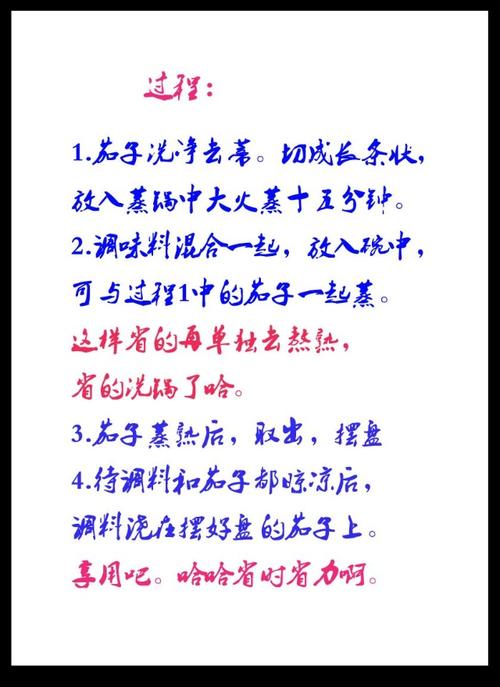 过程：
1.茄子洗净去蒂。切成长条状，
放入蒸锅中大火蒸十五分钟。
2.调味料混合一起，放入碗中，
可与过程1中的茄子一起蒸。
这样省的再单独去熬熟，
省的洗锅了哈。
3.茄子蒸熟后，取出，摆盘
4.待调料和茄子都晾凉后，
调料浇在摆好盘的茄子上。
享用吧。哈哈省时省力啊。